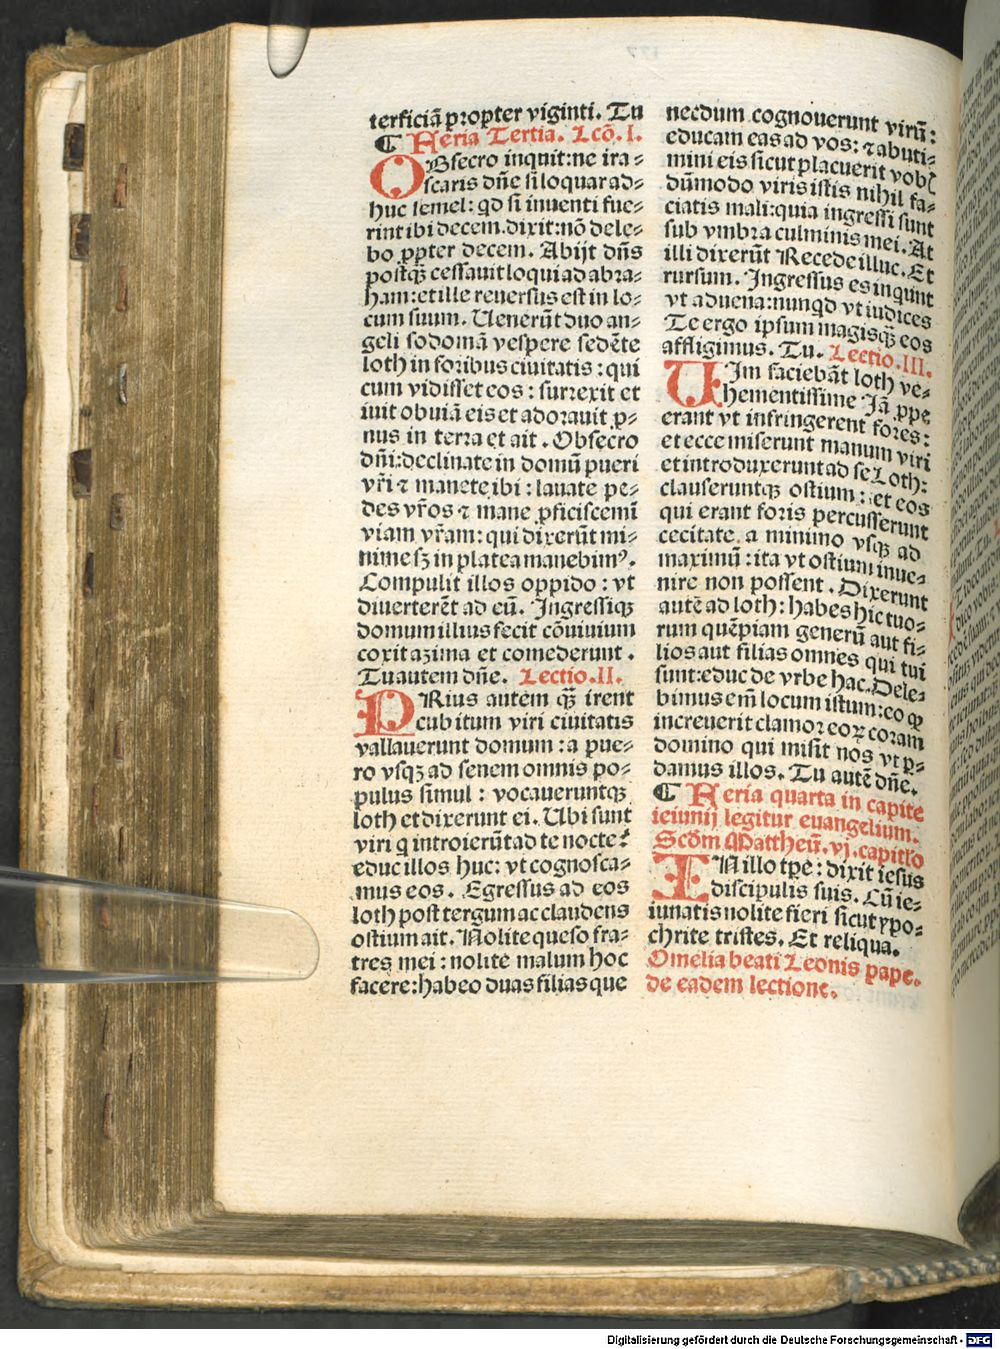 terficiā propter viginti. Tu
¶ Feria Tertia. Lcō. I.
OBsecro inquit:ne ira⸗
scaris dñe si loquar ad⸗
huc semel: qd si inuenti fue⸗
rint ibi decem. dixit:nō dele⸗
bo ꝓpter decem. Abijt dñs
postqꝫ cessauit loqui ad abra⸗
ham:et ille reuersus est in lo⸗
cum suum. Uenerūt duo an⸗
geli sodomā vespere sedēte
loth in foribus ciuitatis : qui
cum vidisset eos : surrexit et
iuit obuiā eis et adorauit ꝓ⸗
nus in terra et ait . Obsecro
dñi:declinate in domū pueri
vr̄i ⁊ manete ibi : lauate pe⸗
des vr̄os ⁊ mane ꝓficiscemī
viam vr̄am: qui dixerūt mi⸗
nime sꝫ in platea manebimꝰ.
Compulit illos oppido : vt
diuerterēt ad eū. Ingressiqꝫ
domum illius fecit cōuiuium
coxit azima et comederunt .
Tu autem dñe. Lectio .II.
PRius autem qꝫ irent
cubitum viri ciuitatis
vallauerunt domum : a pue⸗
ro vsqꝫ ad senem omnis po⸗
pulus simul : vocaueruntqꝫ
loth et dixerunt ei. Ubi sunt
viri q introierūt ad te nocte?
educ illos huc: vt cognosca⸗
mus eos . Egressus ad eos
loth post tergum ac claudens
ostium ait. Nolite queso fra⸗
tres mei : nolite malum hoc
facere:habeo duas filias que
necdum cognouerunt virū:
educam eas ad vos: ⁊ abuti⸗
mini eis sicut placuerit vob̄
dūmodo viris istis nihil fa⸗
ciatis mali:quia ingressi sunt
sub vmbra culminis mei. At
illi dixerūt Recede illuc. Et
rursum. Ingressus es inquīt
vt aduena:nunqd vt iudices
Te ergo ipsum magisqꝫ eos
affligimus. Tu. Lectio .III.
UIm faciebāt loth ve⸗
hementissime Jā ꝓpe
erant vt infringerent fores:
et ecce miserunt manum viri
et introduxerunt ad se Loth:
clauseruntqꝫ ostium : et eos
qui erant foris percusserunt
cecitate a minimo vsqꝫ ad
maximū : ita vt ostium inue⸗
nire non possent . Dixerunt
autē ad loth: habes hic tuo⸗
rum quēpiam generū aut fi⸗
lios aut filias omnes qui tui
sunt:educ de vrbe hac. Dele⸗
bimus em̄ locum istum:eo ꝙ
increuerit clamor eoꝝ coram
domino qui misit nos vt ꝑ⸗
damus illos. Tu autē dñe.
¶ Feria quarta in capite
ieiunij legitur euangelium.
Scd̄m Mattheū. vj. capitl̄o
IN illo tp̄e : dixit iesus
discipulis suis. Cū ie⸗
iunatis nolite fieri sicut ypo⸗
chrite tristes. Et reliqua.
Omelia beati Leonis pape.
de eadem lectione.
Digitalisierung gefördert durch die Deutsche Forschungsgemeinschaft - DFG